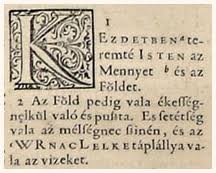 1
KEZDETBEN ᵃ te-
remté ISTEN az
Mennyet ᵇ és az
Földet.
2 Az Föld pedig vala ékesség-
nelkül való és puſta. Es setétség
vala az mélségnec ſiinén, és az
WRNAC LELKE táplállya va-
la az vizeket.